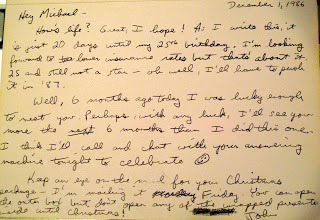 December 1, 1986
Hey Michael -
How's life? Great, I hope! As I write this, it
is just 20 days until my 25th birthday. I'm looking
forward to lower insurance rates but that's about it
25 and still not a star - oh well, I'll have to push
it in '87.
Well, 6 months ago today I was lucky enough
to meet you. Perhaps, with any luck, I'll see you
more the next 6 months than I did this one.
I think I'll call and chat with your answering
machine tonight to celebrate ☺
Keep an eye on the mail for your Christmas
package - I'm mailing it Friday. You can open
the outer box but don't open any of the wrapped presents
until Christmas!
John